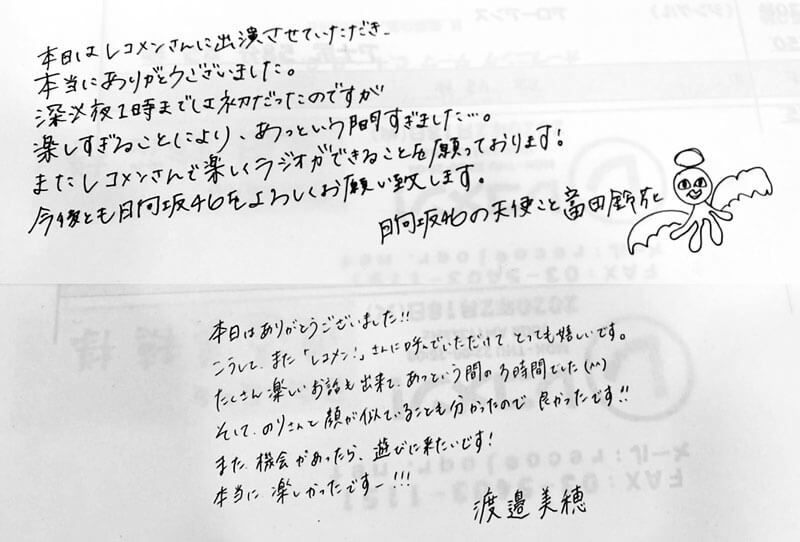 本日はレコメンさんに出演させていただき、
本当にありがとうございました。
深夜1時までは初だったのですが
楽しすぎることにより、あっという間すぎました…。
またレコメンさんで楽しくラジオができることを願っております!
今後とも日向坂46をよろしくお願い致します。
日向坂46の天使こと富田鈴花
本日はありがとうございました!!
こうして、また「レコメン!」さんに呼んでいただけてとっても嬉しいです。
たくさん楽しいお話も出来て、あっという間の3時間でした(^^)
そして、のりさんと顔が似ていることも分かったので良かったです!!
また、機会があったら、遊びに来たいです!
本当に楽しかったですー!!!
渡邉美穂